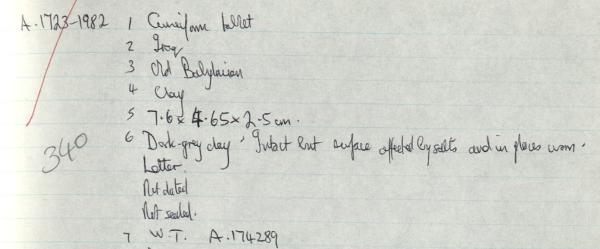 A.1723-1982 1 Cuneiform tablet
2 Iraq
3 Old Babylonian
4 Clay
5 7.6 x 4.65 x 2.5 cm.
340
6 Dark-grey clay. Intact but surface affected by salts and in places worn.
Letter.
Not dated
Not sealed.
7 W.T. A.174289